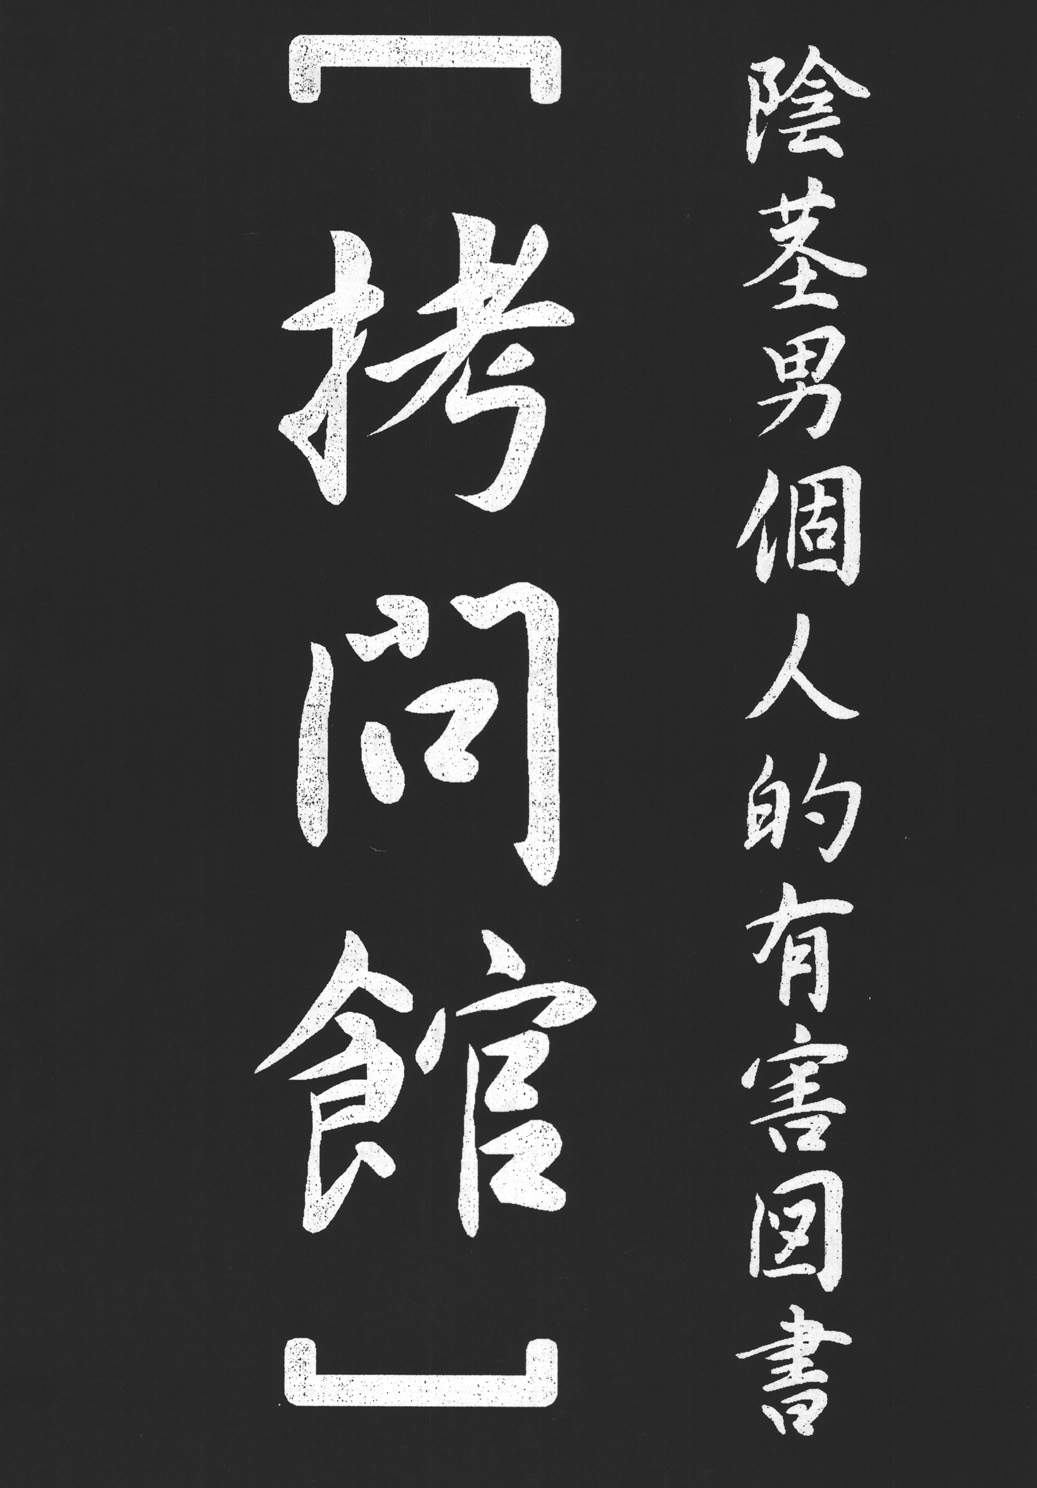 陰茎男個人的有害図書
［拷問館］